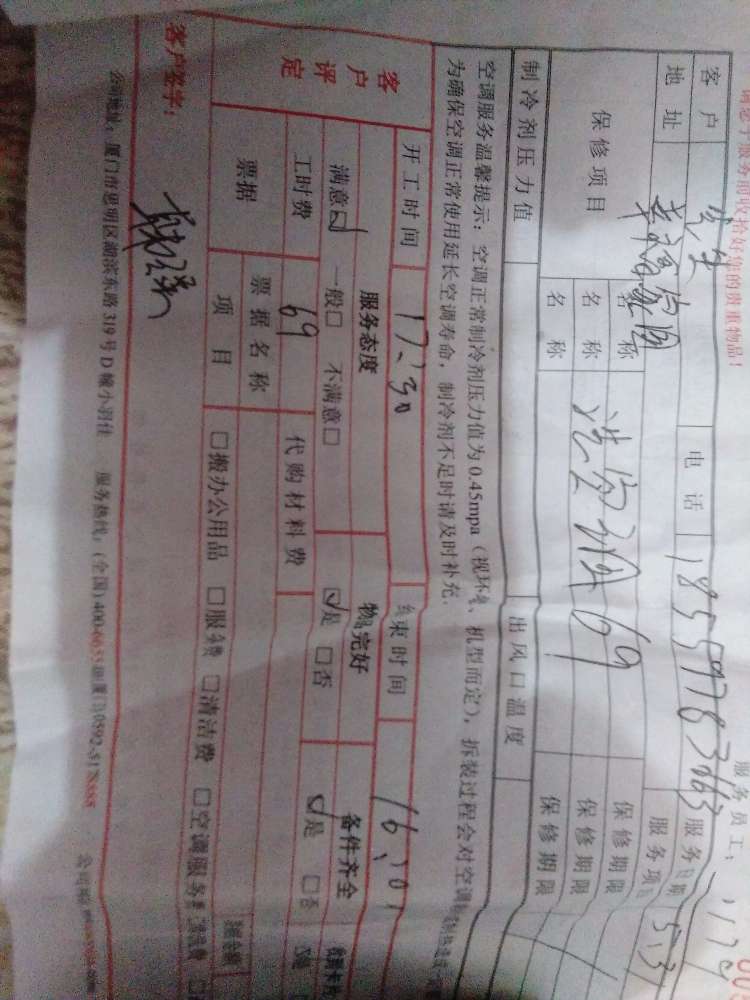 请您于服务前收拾好您的贵重物品！ 服务员工：
客户 先生 电话 18559783663 服务日期 5.31
地址 幸福家园 服务项目
保修项目 名称 洗空调 69 保修期限
名称 保修期限
名称 保修期限
制冷剂压力值 出风口温度
空调服务温馨提示：空调正常制冷剂压力值为0.45mpa（视环境、机型而定），拆装过程会对空调
为确保空调正常使用延长空调寿命，制冷剂不足时请及时补充.
客户评定 开工时间 17:30 结束时间 16:01
服务态度 物品完好 备件齐全
满意☑ 一般□ 不满意□ ☑是 □否 ☑是 □否
工时费 69 代购材料费
票据 票据名称
项目 □搬办公用品 □服务费 □清洁费 □空调服务费
客户签字：
公司地址：厦门市思明区湖滨东路319号D幢小羽佳 服务热线：(全国)400-6655